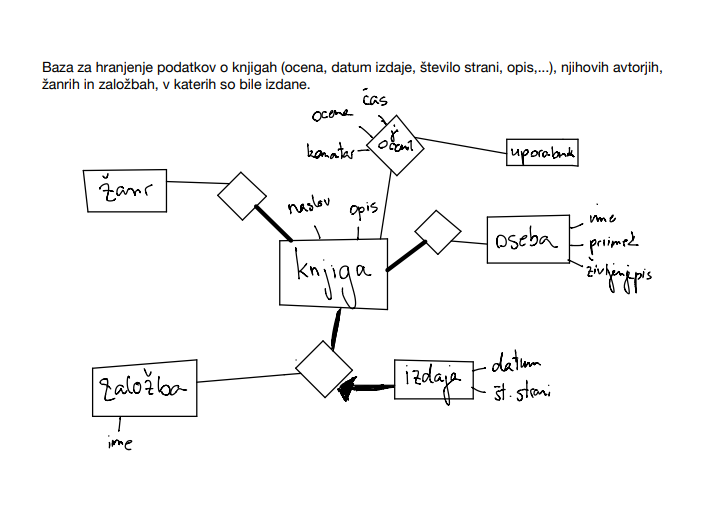 Baza za hranjenje podatkov o knjigah (ocena, datum izdaje, število strani, opis,...), njihovih avtorjih,
žanrih in založbah, v katerih so bile izdane.
čas
ocena
je
ocenil
komentar
uporabnik
žanr
naslov
opis
ime
oseba
priimek
življenjepis
knjiga
datum
izdaja
št. strani
založba
ime